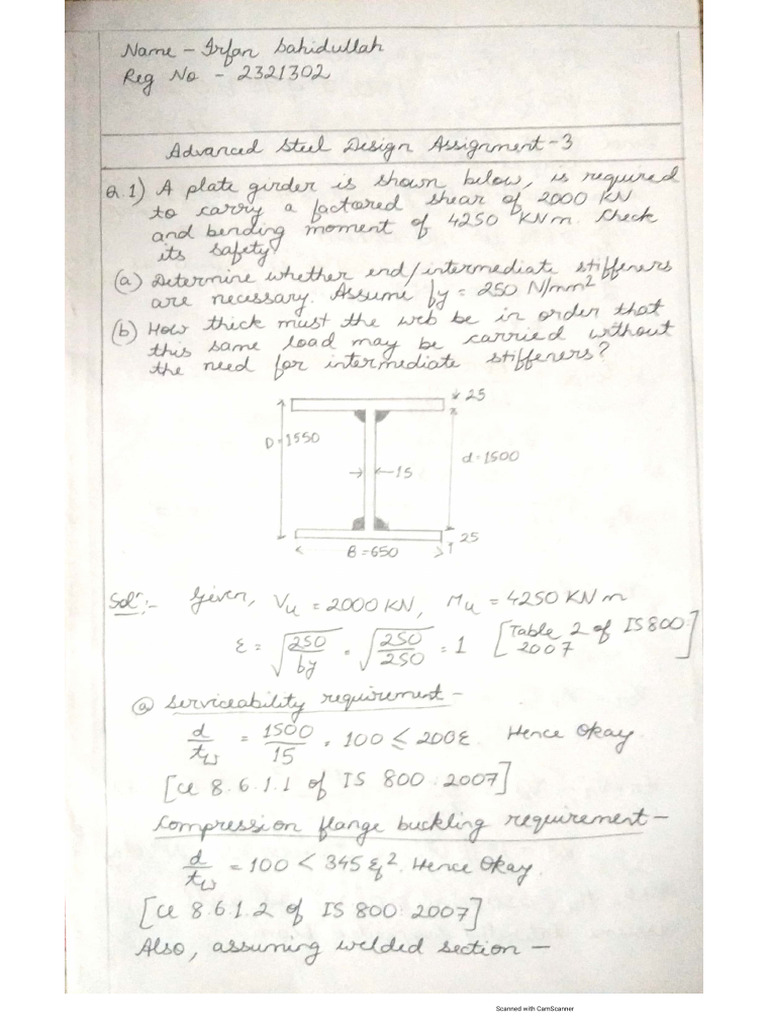 Name - Irfan Sahidullah
Reg No - 2321302
Advanced Steel Design Assignment-3
Q.1) A plate girder is shown below, is required
to carry a factored shear of 2000 KN
and bending moment of 4250 KNm. Check
its safety.
(a) Determine whether end/intermediate stiffeners
are necessary. Assume fy = 250 N/mm²
(b) How thick must the web be in order that
this same load may be carried without
the need for intermediate stiffeners?
25
D=1550
d=1500
15
25
B=650
Solⁿ:- Given, Vu = 2000KN, Mu = 4250 KNm
ε = √250/by = √250/250 = 1 [Table 2 of IS 800:
2007]
(a) Serviceability requirement -
d/tw = 1500/15 = 100 ≤ 200ε. Hence Okay.
[Cl 8.6.1.1 of IS 800:2007]
Compression flange buckling requirement -
d/tw = 100 < 345 εf². Hence Okay.
[Cl 8.6.1.2 of IS 800:2007]
Also, assuming welded section -
Scanned with CamScanner